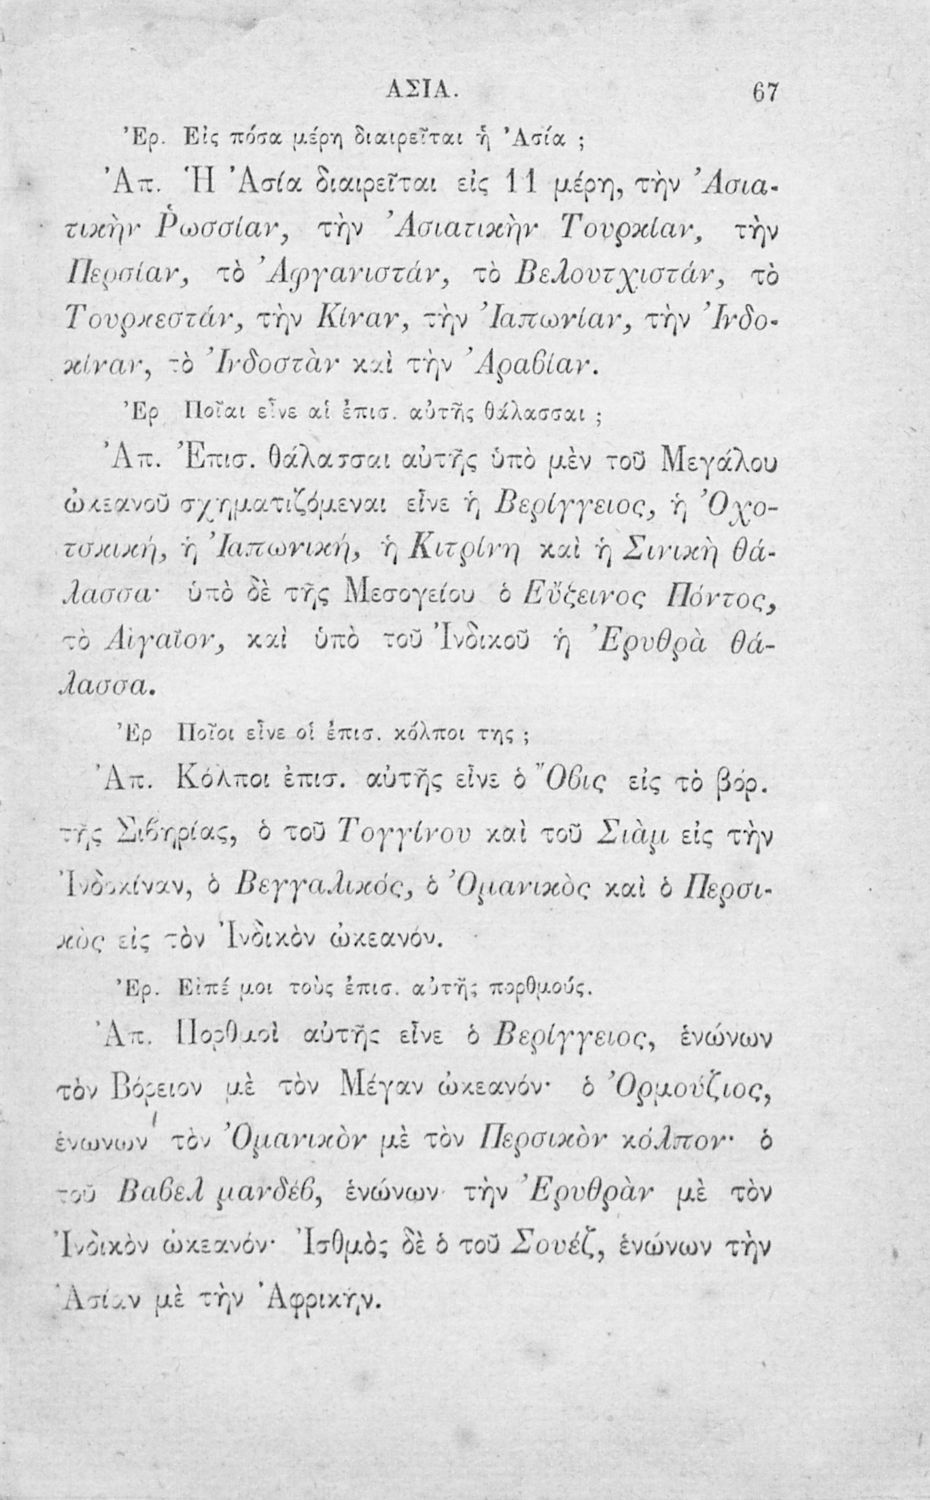 ΑΣΙΑ. 67
Ἐρ. Εἰς πόσα μέρη διαιρεῖται ἡ Ἀσία ;
Ἀπ. Ἡ Ἀσία διαιρεῖται εἰς 11 μέρη, τὴν Ἀσια-
τικὴν Ῥωσσίαν, τὴν Ἀσιατικὴν Τουρκίαν, τὴν
Περσίαν, τὸ Ἀφγανιστάν, τὸ Βελουτχιστάν, τὸ
Τουρκεστάν, τὴν Κίναν, τὴν Ἰαπωνίαν, τὴν Ἰνδο-
κίναν, τὸ Ἰνδοστὰν καὶ τὴν Ἀραβίαν.
Ἐρ Ποῖαι εἶνε αἱ ἐπισ. αὐτῆς θάλασσαι ;
Ἀπ. Ἐπισ. θάλασσαι αὐτῆς ὑπὸ μὲν τοῦ Μεγάλου
ὠκεανοῦ σχηματιζόμεναι εἶνε ἡ Βερίγγειος, ἡ Ὀχο-
τσκική, ἡ Ἰαπωνική, ἡ Κιτρίνη καὶ ἡ Σινικὴ θά-
λασσα· ὑπὸ δὲ τῆς Μεσογείου ὁ Εὔξεινος Πόντος,
τὸ Αἰγαῖον, καὶ ὑπὸ τοῦ Ἰνδικοῦ ἡ Ἐρυθρὰ θά-
λασσα.
Ἐρ Ποῖοι εἶνε οἱ ἐπισ. κόλποι της ;
Ἀπ. Κόλποι ἐπισ. αὐτῆς εἶνε ὁ Ὄβις εἰς τὸ βόρ.
τῆς Σιβηρίας, ὁ τοῦ Τογγίνου καὶ τοῦ Σιὰμ εἰς τὴν
Ἰνδοκίναν, ὁ Βεγγαλικός, ὁ Ὀμανικὸς καὶ ὁ Περσι-
κὸς εἰς τὸν Ἰνδικὸν ὠκεανόν.
Ἐρ. Εἰπέ μοι τοὺς ἐπισ. αὐτῆς πορθμούς.
Ἀπ. Πορθμοὶ αὐτῆς εἶνε ὁ Βερίγγειος, ἑνώνων
τὸν Βόρειον μὲ τὸν Μέγαν ὠκεανόν· ὁ Ὀρμούζιος,
ἑνώνων τὸν Ὀμανικὸν μὲ τὸν Περσικὸν κόλπον· ὁ
τοῦ Βαβελ μανδέβ, ἑνώνων τὴν Ἐρυθρὰν μὲ τὸν
Ἰνδικὸν ὠκεανόν· Ἰσθμὸς δὲ ὁ τοῦ Σουέζ, ἑνώνων τὴν
Ἀσίαν μὲ τὴν Ἀφρικήν.